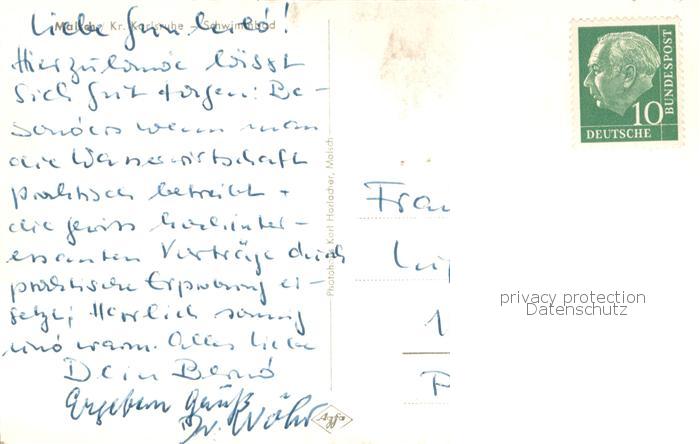 Malsch, Kr. Karlsruhe – Schwimmbad
Liebe
Hierzulande lässt
sich gut tagen: Be-
sonders wenn man
die Wasserwirtschaft
praktisch betreibt +
die gewiss hochinter-
essanten Vorträge durch
praktische Erprobung er-
setzt; Herrlich sonnig
und warm. Alles Liebe
Dein Bernd
Ergebenen Gruß
Dr. Wöhr
Photohaus Karl Horlacher, Malsch
Agfa
10
DEUTSCHE
BUNDESPOST
Frau
privacy protection
Datenschutz